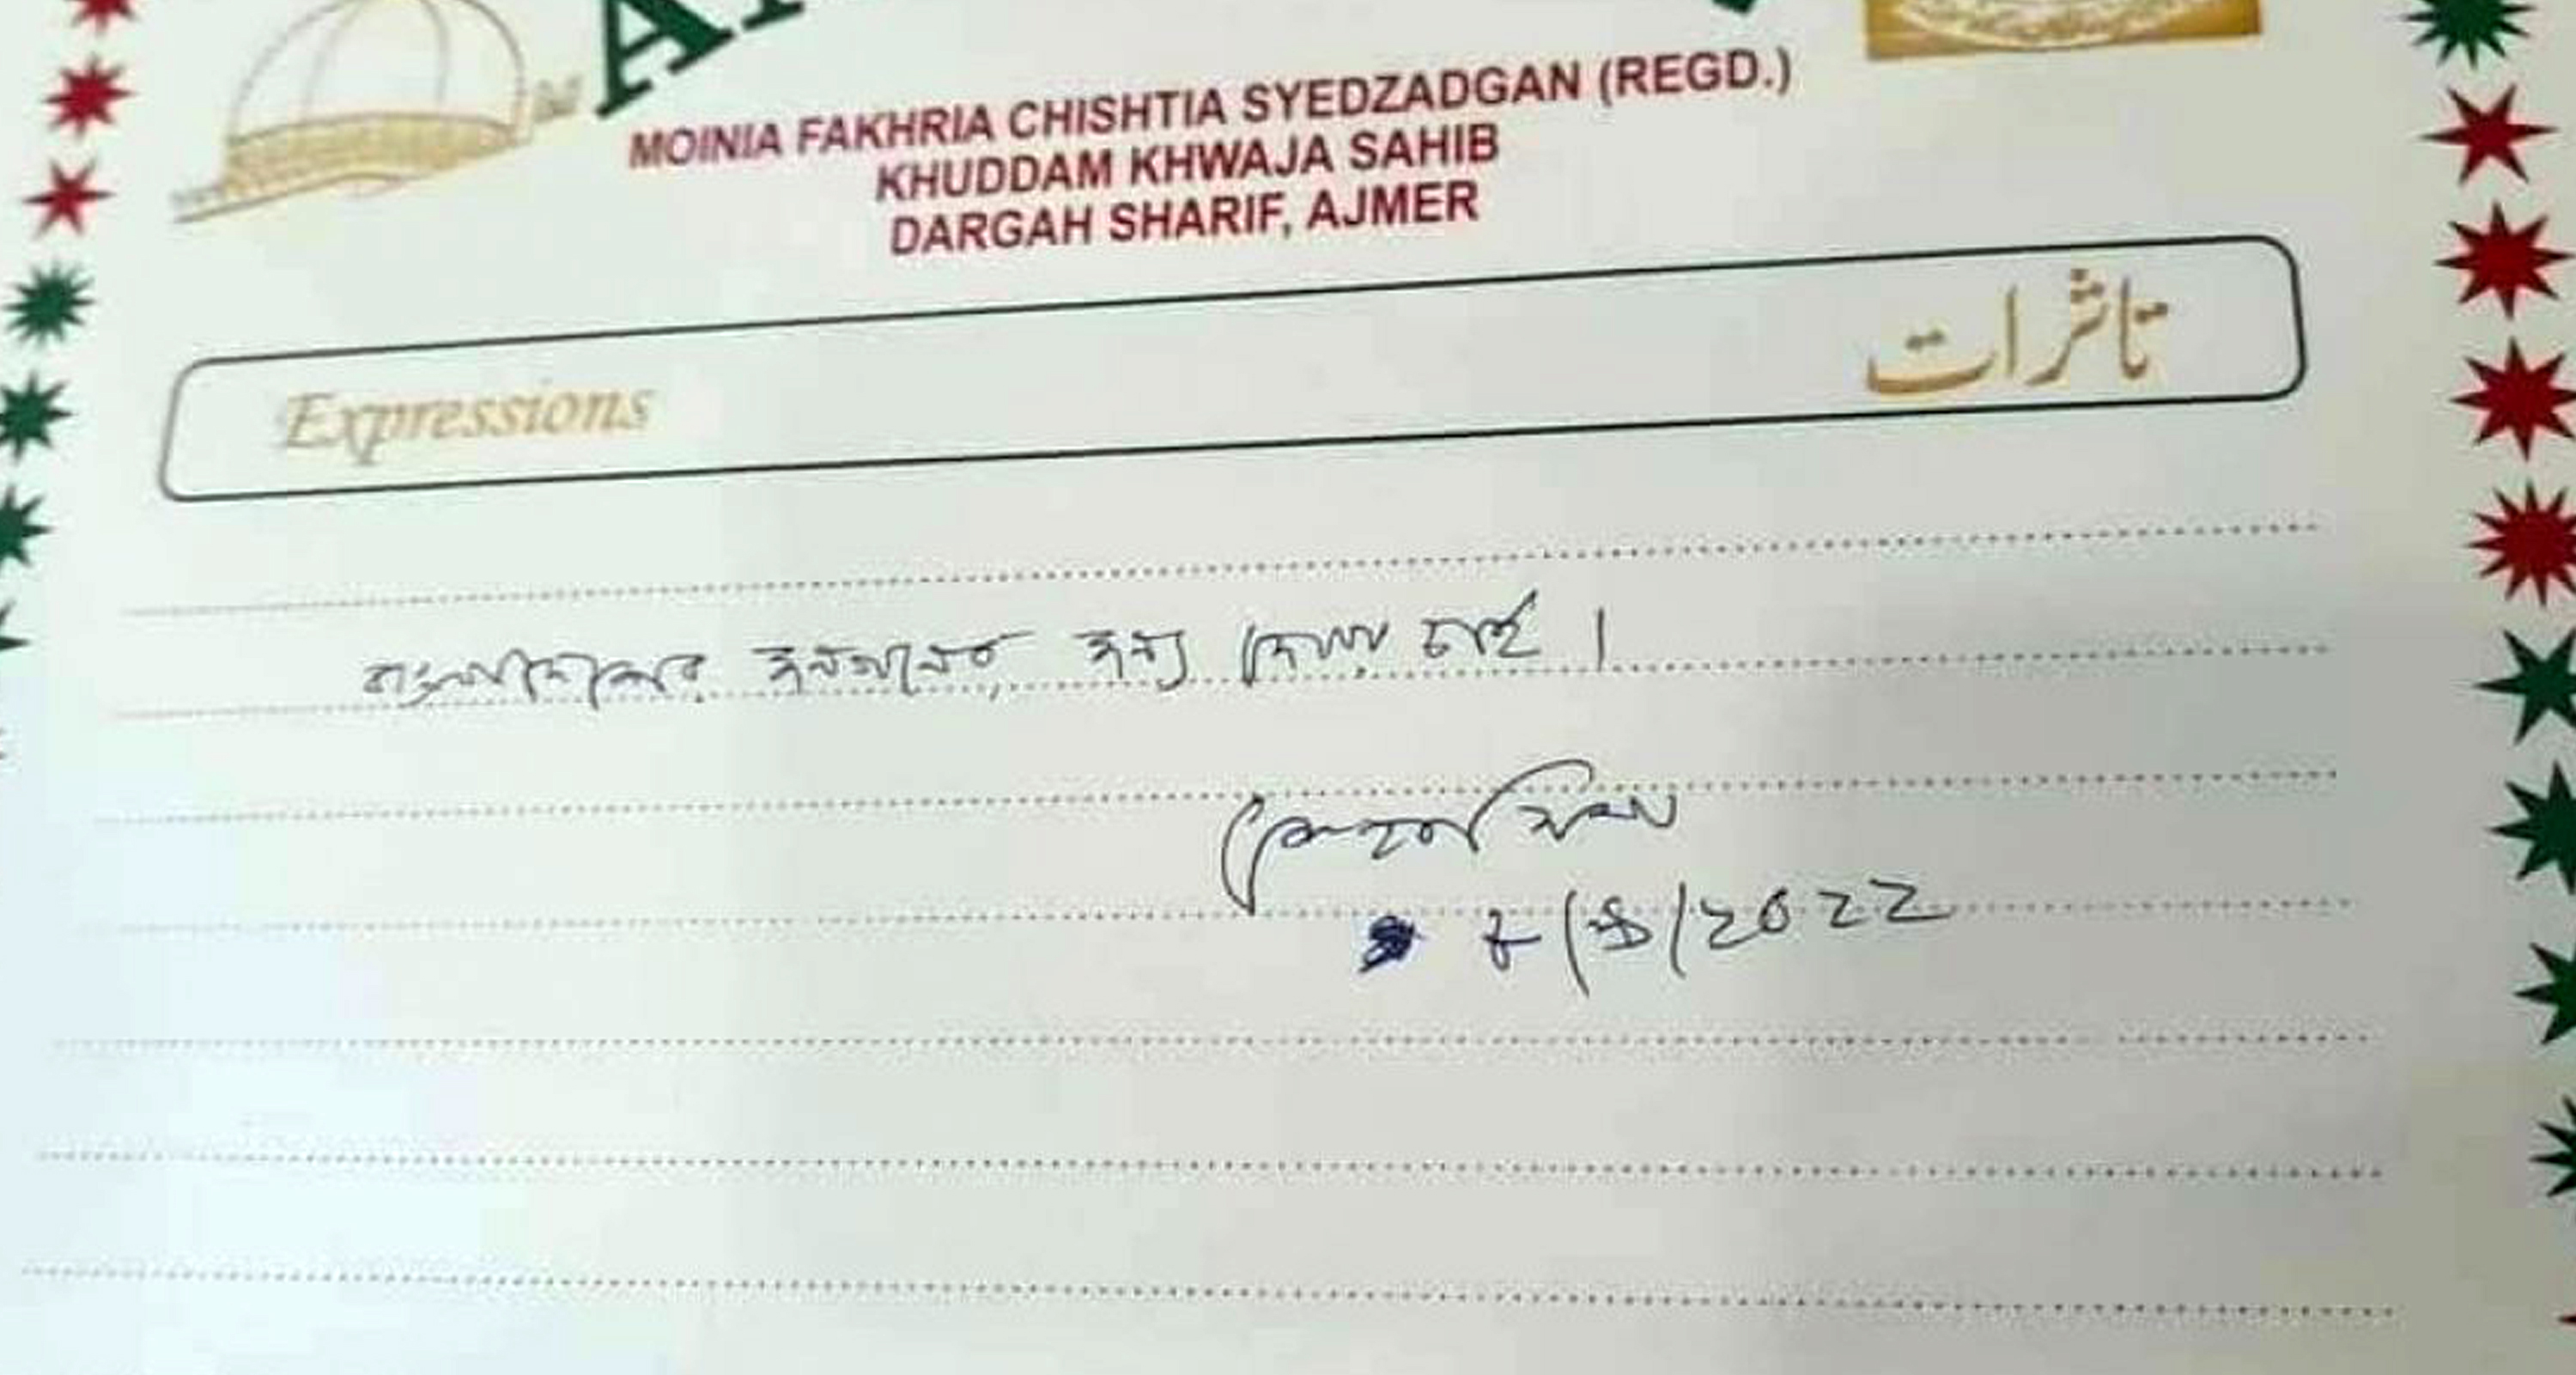 MOINIA FAKHRIA CHISHTIA SYEDZADGAN (REGD.)
KHUDDAM KHWAJA SAHIB
DARGAH SHARIF, AJMER
Expressions تاثرات
বাংলাদেশের জনগনের জন্য দোয়া চাই ।
শেখ হাসিনা
৮/৯/২০২২